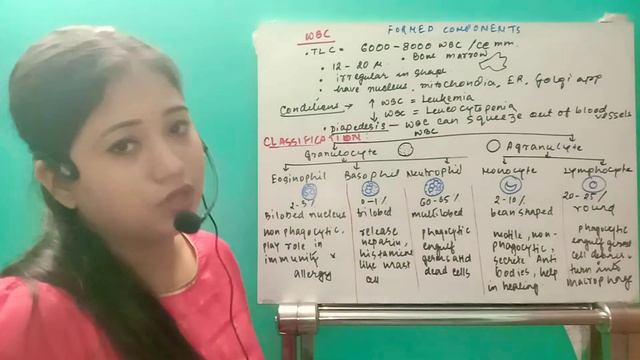 WBC
FORMED COMPONENTS
• TLC = 6000-8000 WBC/cc mm.
• 12-20 µ
• Bone marrow
• irregular in shape
• have nucleus, mitochondia, ER, Golgi app
Conditions → ↑ WBC = Leukemia
↓ WBC = Leucocytopenia
• Diapedesis - WBC can squeeze out of blood vessels
CLASSIFICATION: WBC
Granulocyte
Agranulocyte
Eosinophil
2-3%
Bilobed nucleus
non phagocytic,
play role in
immunity
allergy
Basophil
0-1%
trilobed
release
heparin,
histamine
like mast
cell
Neutrophil
60-65%
multilobed
phagocytic
engulf
germs and
dead cells
Monocyte
2-10%
bean shaped
motile, non-
phagocytic,
secrete Anti
bodies, help
in healing
Lymphocyte
20-25%
round
phagocytic
engulf germs
cell debris,
turn into
macrophage